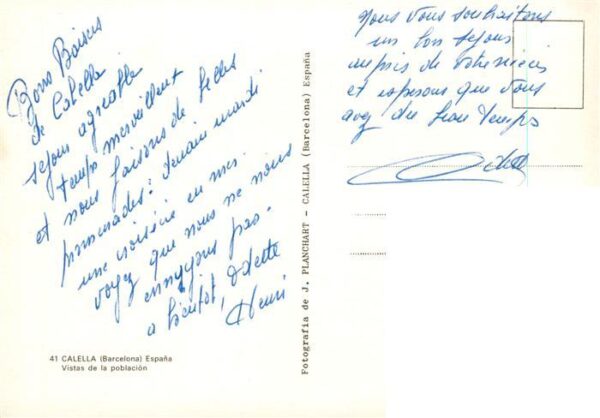 Bons Baisers
de Calella
sejour agreable
temps merveilleux
et nous faisons de belles
promenades: demain mardi
une croisière en mer
voyez que nous ne nous
ennuyons pas.
a bientôt, Odette
Henri
41 CALELLA (Barcelona) España
Vistas de la población
Fotografía de J. PLANCHART - CALELLA (Barcelona) España
Nous Vous souhaitons
un bon sejour
aupres de votre
et esperons que Vous
avez du beau temps
Odette